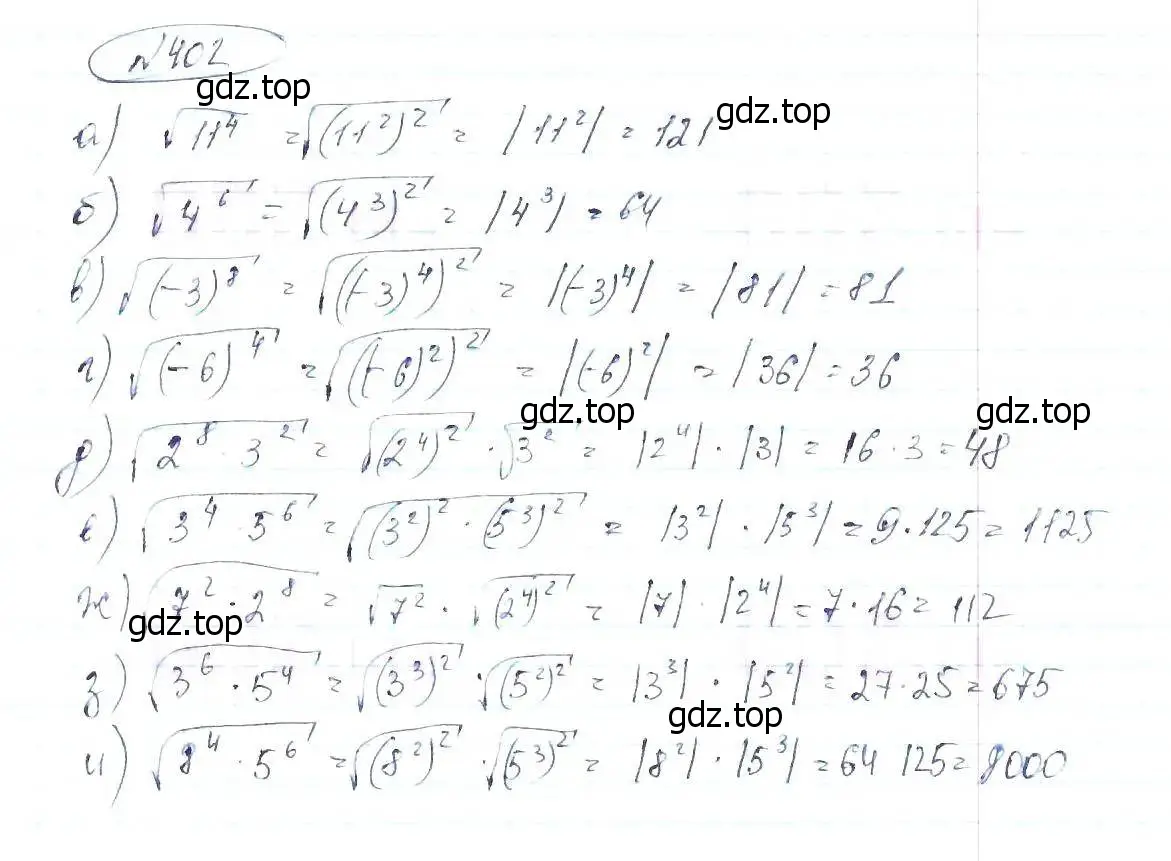 №402
gdz.top
а) √11⁴ = √(11²)² = |11²| = 121 gdz.top
б) √4⁶ = √(4³)² = |4³| = 64
в) √(-3)⁸ = √((-3)⁴)² = |(-3)⁴| = |81| = 81
г) √(-6)⁴ = √((-6)²)² = |(-6)²| = |36| = 36
gdz.top gdz.top
д) √2⁸ · 3² = √(2⁴)² · √3² = |2⁴| · |3| = 16 · 3 = 48
е) √3⁴ · 5⁶ = √(3²)² · (5³)² = |3²| · |5³| = 9 · 125 = 1125
ж) √7² · 2⁸ = √7² · √(2⁴)² = |7| · |2⁴| = 7 · 16 = 112
gdz.top
з) √3⁶ · 5⁴ = √(3³)² · √(5²)² = |3³| · |5²| = 27 · 25 = 675
gdz.top
и) √8⁴ · 5⁶ = √(8²)² · √(5³)² = |8²| · |5³| = 64 125 = 8000